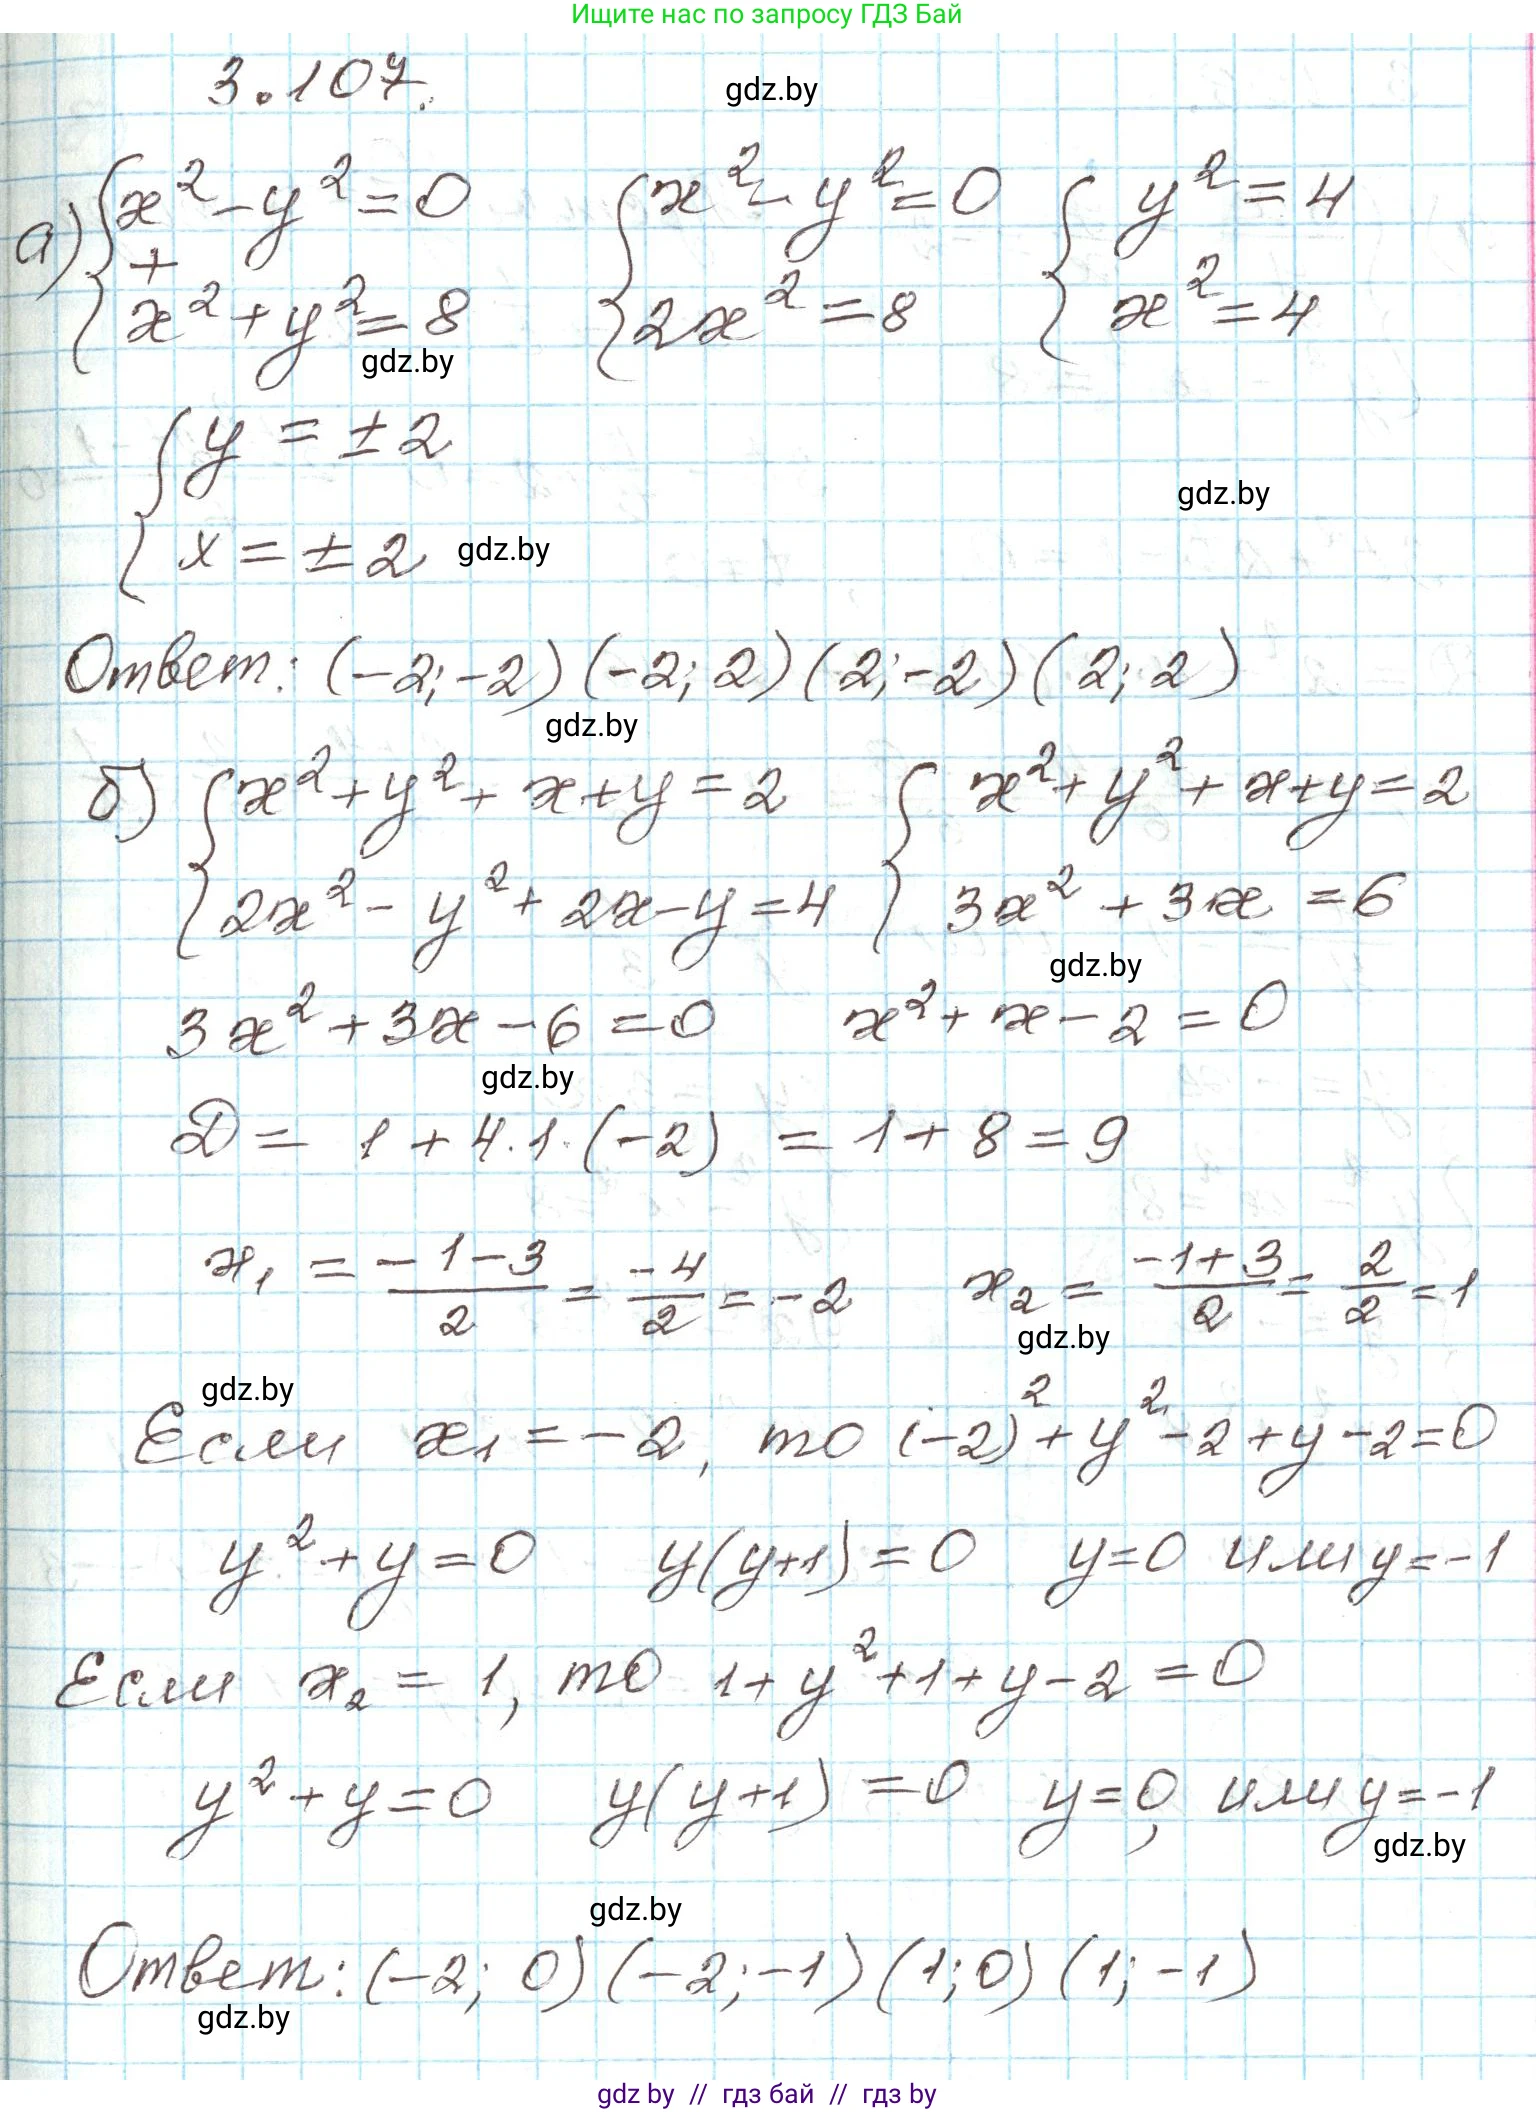 Ищите нас по запросу ГДЗ Бай
3.107.
gdz.by
а) { x² - y² = 0 { x² - y² = 0 { y² = 4
+
x² + y² = 8 2x² = 8 x² = 4
gdz.by
{ y = ± 2
gdz.by
x = ± 2 gdz.by
Ответ: (-2; -2) (-2; 2) (2; -2) (2; 2)
gdz.by
б) { x² + y² + x + y = 2 { x² + y² + x + y = 2
2x² - y² + 2x - y = 4 3x² + 3x = 6
gdz.by
3x² + 3x - 6 = 0 x² + x - 2 = 0
gdz.by
D = 1 + 4·1·(-2) = 1 + 8 = 9
x₁ = (-1-3)/2 = -4/2 = -2 x₂ = (-1+3)/2 = 2/2 = 1
gdz.by
gdz.by
Если x₁ = -2, то (-2)² + y² - 2 + y - 2 = 0
y² + y = 0 y(y+1) = 0 y = 0 или y = -1
Если x₂ = 1, то 1 + y² + 1 + y - 2 = 0
y² + y = 0 y(y+1) = 0 y = 0, или y = -1
gdz.by
gdz.by
Ответ: (-2; 0) (-2; -1) (1; 0) (1; -1)
gdz.by
gdz by // гдз бай // гдз by